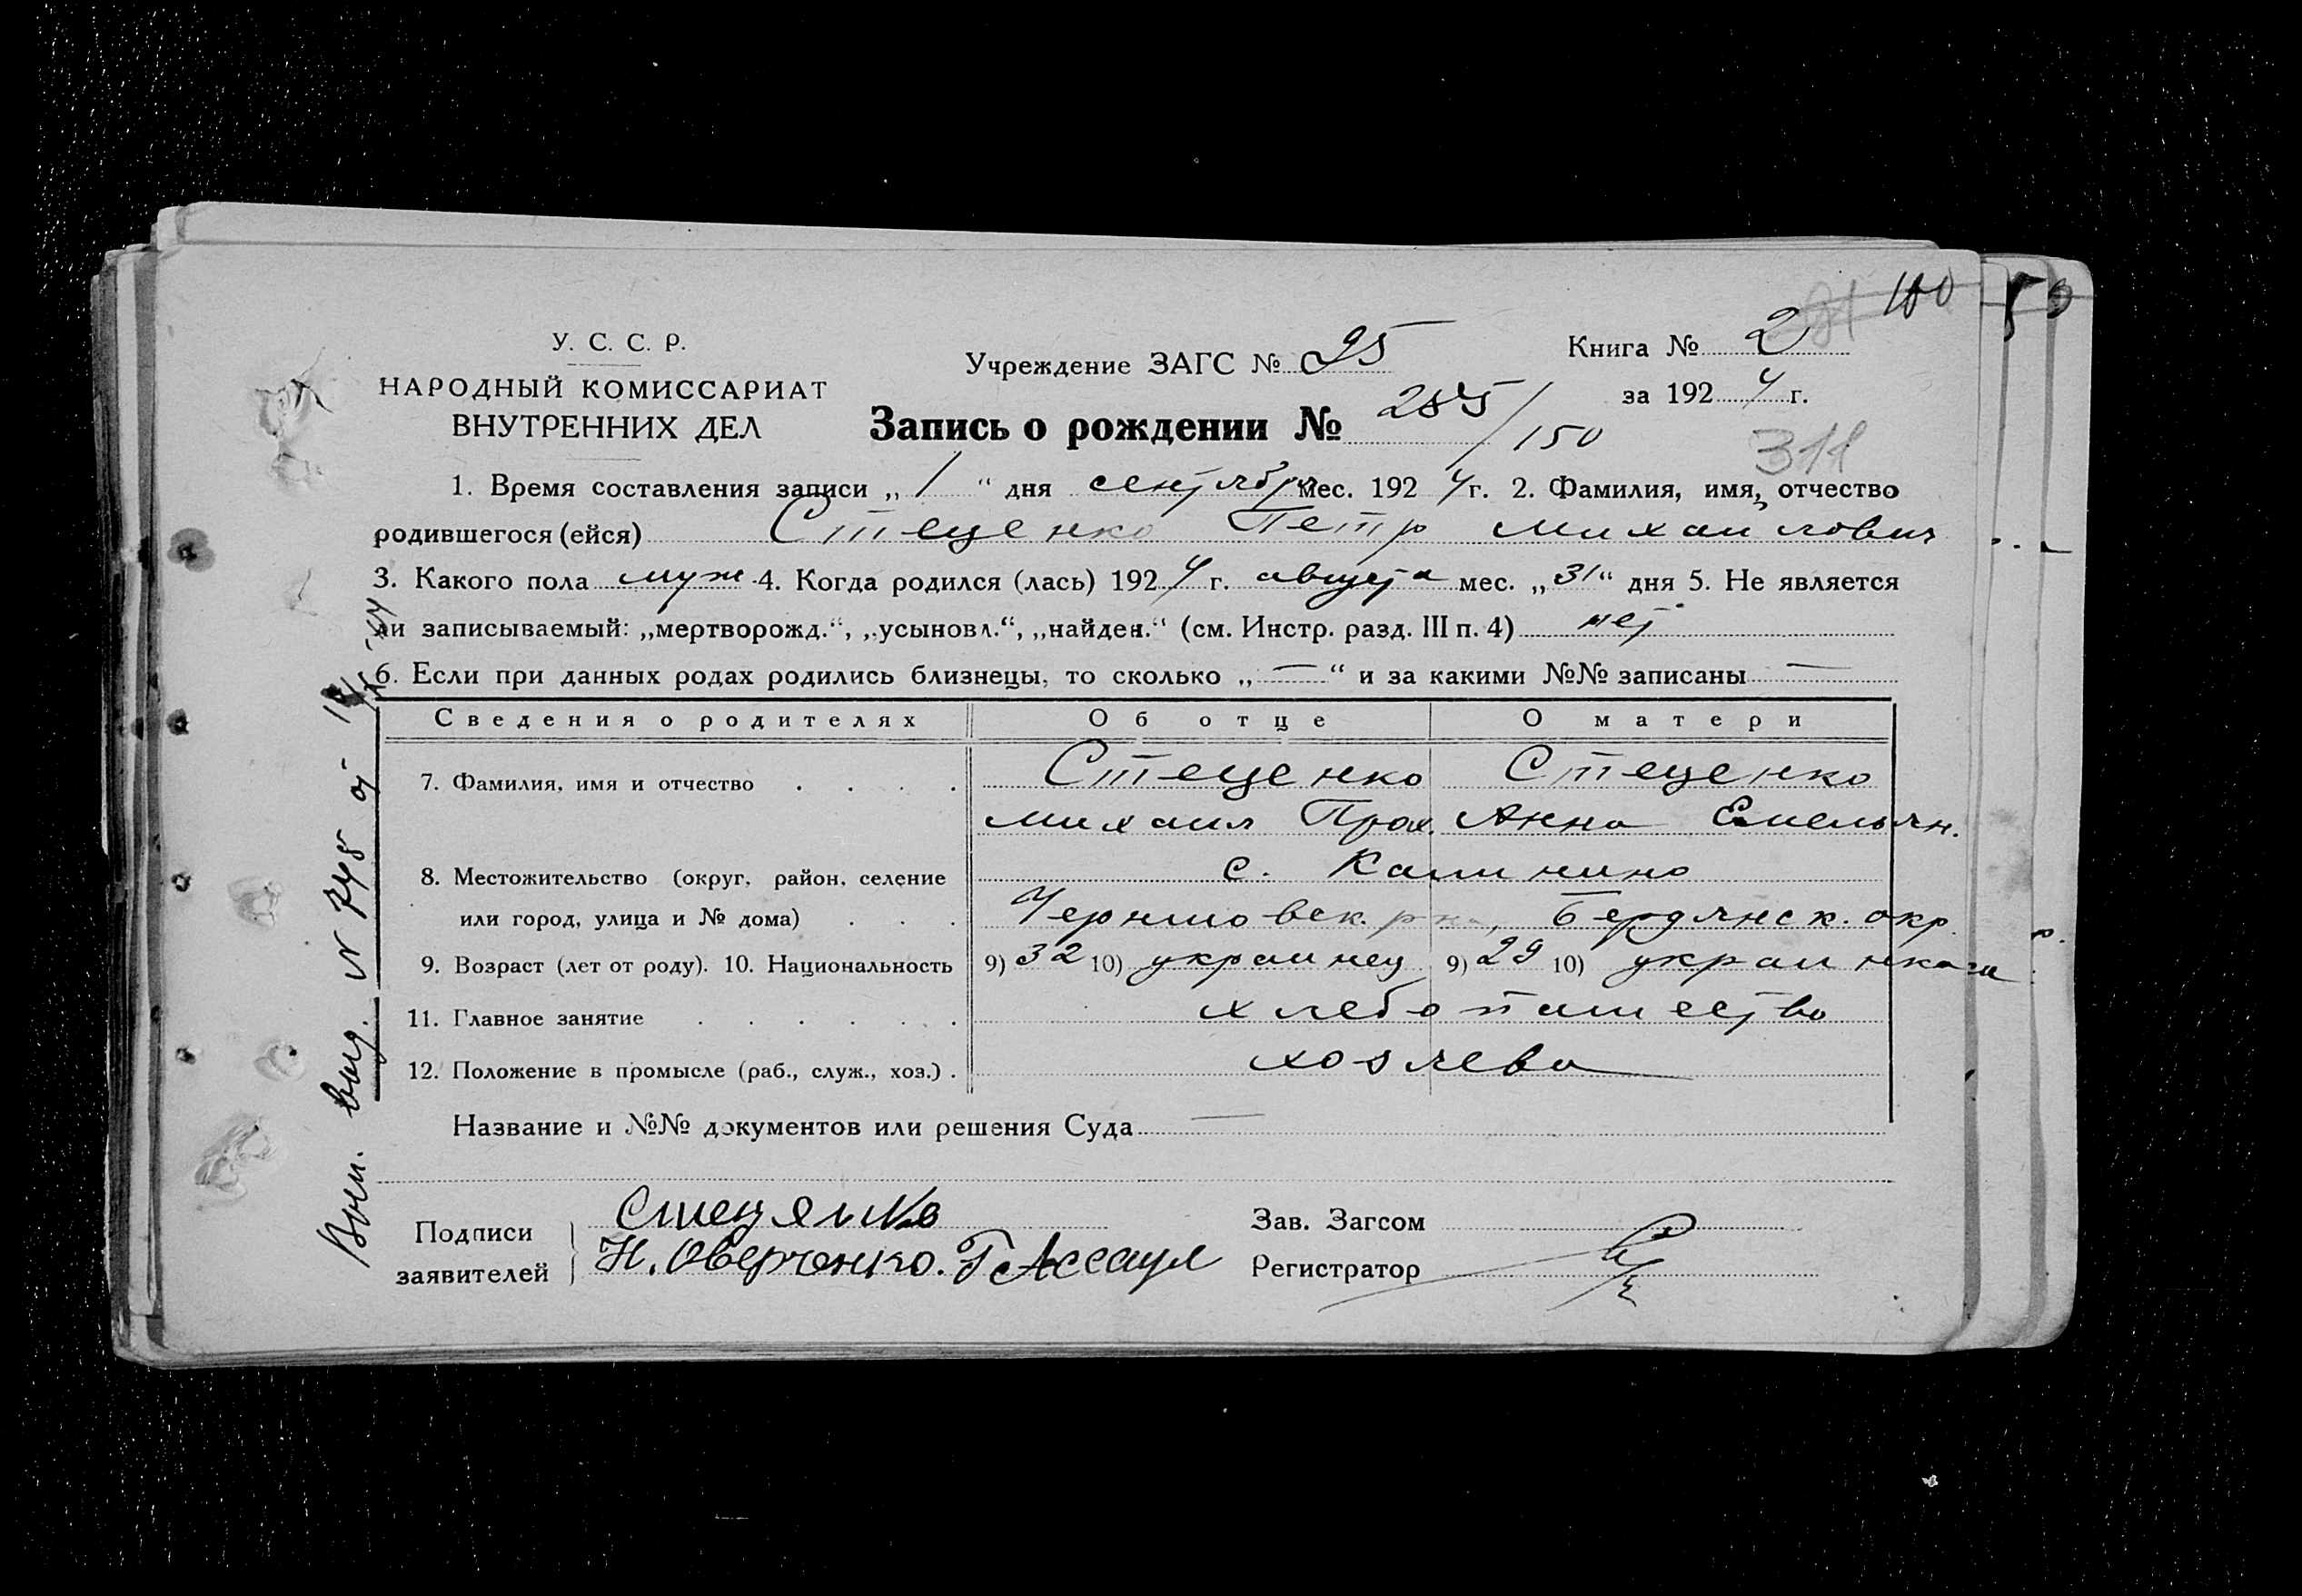 100
У. С. С. Р.
НАРОДНЫЙ КОМИССАРИАТ
ВНУТРЕННИХ ДЕЛ
Учреждение ЗАГС № 25
Книга № 2
за 1924 г.
Запись о рождении № 285/150
311
1. Время составления записи „1“ дня сентября мес. 1924 г. 2. Фамилия, имя, отчество
родившегося (ейся) Стеценко Петр Михайлович
3. Какого пола муж. 4. Когда родился (лась) 1924 г. августа мес. „31“ дня 5. Не является
ли записываемый: „мертворожд.“, „усыновл.“, „найден.“ (см. Инстр. разд. III п. 4) нет
6. Если при данных родах родились близнецы, то сколько „—“ и за какими №№ записаны —
Сведения о родителях Об отце О матери
7. Фамилия, имя и отчество . . . . Стеценко Стеценко
Михаил Прох. Анна Емельян.
8. Местожительство (округ, район, селение с. Калинино
или город, улица и № дома) . . . Черниговск. р-на, Бердянск. окр.
9. Возраст (лет от роду). 10. Национальность 9) 32 10) украинец 9) 29 10) украинка
11. Главное занятие . . . . . . хлебопашество
12. Положение в промысле (раб., служ., хоз.) . хозяева
Название и №№ документов или решения Суда —
Подписи
заявителей
Стеценко
Н. Оверченко. Г Ассаул
Зав. Загсом
Регистратор
выд. N 748 от